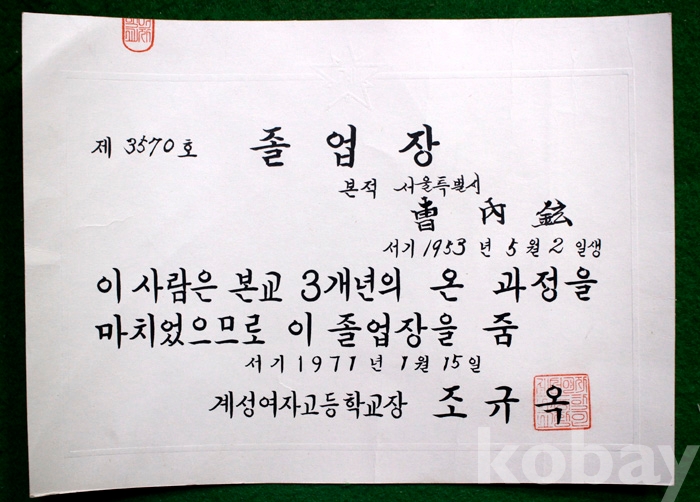 제 3570 호
졸 업 장
본적 서울특별시
曺 內 鉉
서기 1953 년 5 월 2 일생
이 사람은 본교 3개년의 온 과정을
마치었으므로 이 졸업장을 줌
서기 1971 년 1 월 15 일
계성여자고등학교장 조 규 옥
kobay